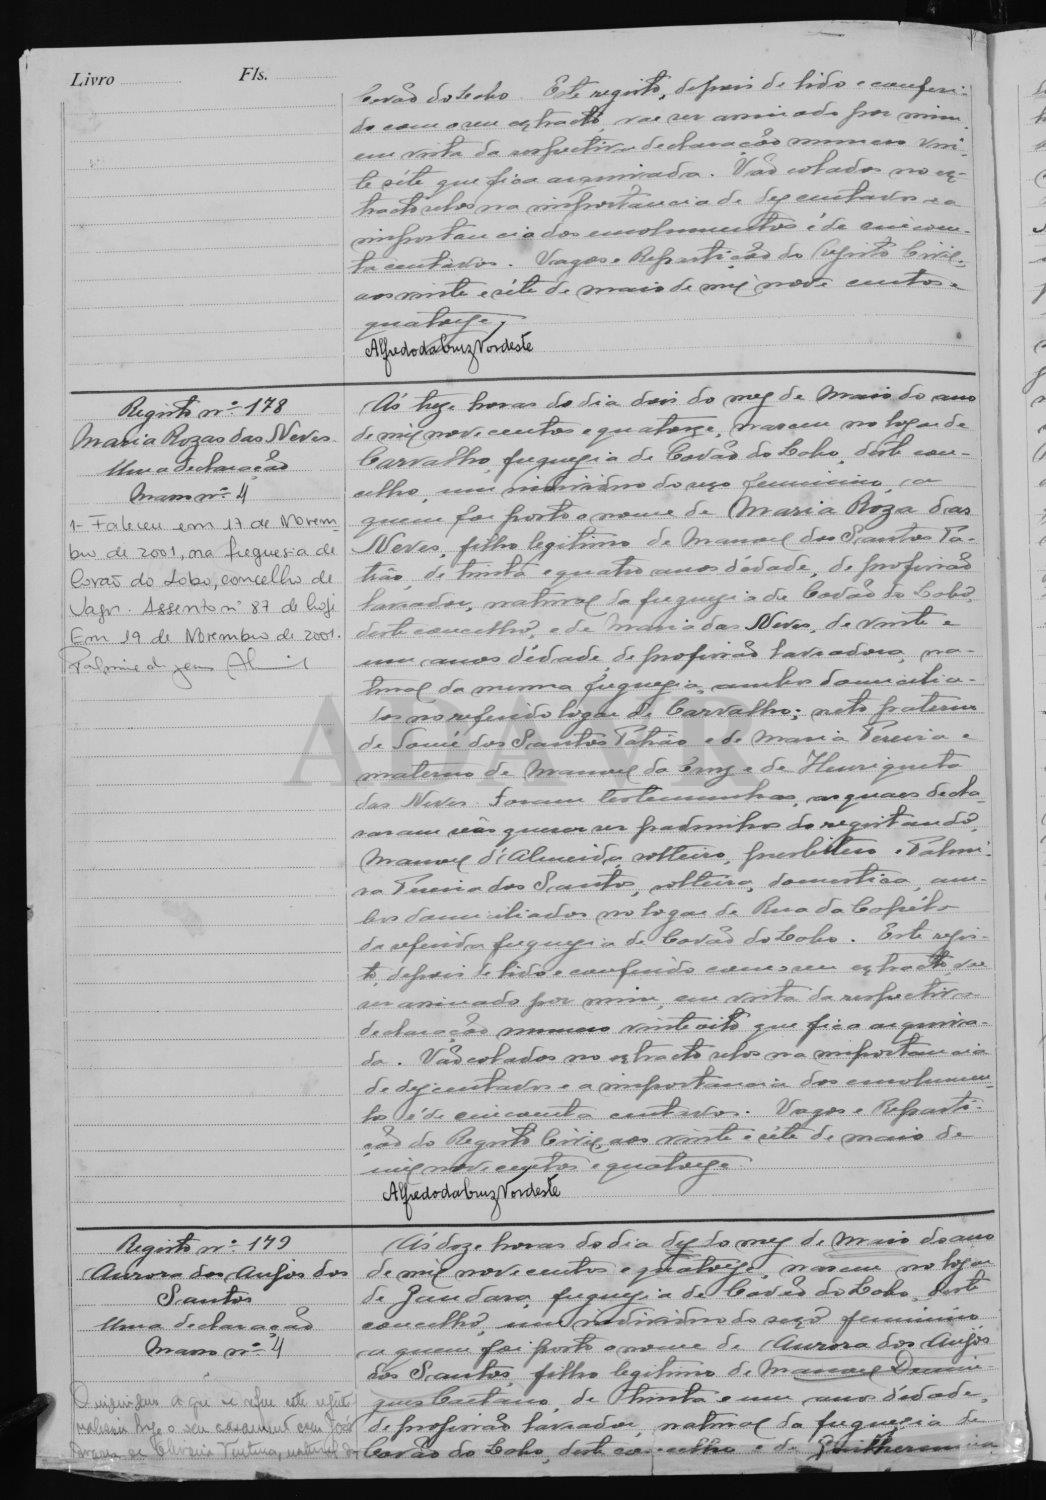 Livro Fls.
Covão do Lobo. Este registo, depois de lido e conferi-
do com o seu extracto, vae ser assinado por mim,
em vista da respectiva declaração numero vin-
te sete que fica arquivada. Vão colados no ex-
tracto selos na importancia de dez centavos e a
importancia dos emolumentos é de cincoen-
ta centavos. Vagos e Repartição do Registo Civil,
aos vinte e sete de maio de mil nove centos e
quatorze,
Alfredo da Cruz Nordeste
Registo nº 178
Maria Rozas das Neves
Uma declaração
Maço nº 4
1- Faleceu em 17 de Novem
bro de 2001, na freguesia de
Covão do Lobo, concelho de
Vagos. Assento nº 87 de hoje
Em 19 de Novembro de 2001.
Ás treze horas do dia dois do mez de Maio do ano
de mil nove centos e quatorze, nasceu no logar de
Carvalho, freguezia de Covão do Lobo, deste con-
celho, um individuo do sexo feminino, a
quem foi posto o nome de Maria Roza das
Neves, filho legitimo de Manoel dos Santos Pa-
trão, de trinta e quatro anos d'edade, de profissão
lavrador, natural da freguezia de Covão do Lobo,
deste concelho, e de Maria das Neves, de vinte e
um anos d'edade, de profissão lavradora, na-
tural da mesma freguezia, ambos domicilia-
dos no referido logar de Carvalho; neto paterno
de José dos Santos Patrão e de Maria Pereira e
materno de Manoel da Cruz e de Henriqueta
das Neves. Foram testemunhas, as quaes decla-
raram não querer ser padrinhos do registando,
Manoel d'Almeida, solteiro, presbitero e Palmi-
ra Pereira dos Santos, solteira, domestica, am-
bos domiciliados no logar de Rua da Capéla
da referida freguezia de Covão do Lobo. Este regis-
to, depois de lido e conferido com o seu extracto, vae
ser assinado por mim, em vista da respectiva
declaração numero vinte oito que fica arquiva-
da. Vão colados no extracto selos na importancia
de dez centavos e a importancia dos emolumen-
tos é de cincoenta centavos. Vagos e Reparti-
ção do Registo Civil, aos vinte e sete de maio de
mil nove centos e quatorze
Alfredo da Cruz Nordeste
ADAVR
Registo nº 179
Aurora dos Anjos dos
Santos
Uma declaração
Maço nº 4
Ás doze horas do dia dez do mez de Maio do ano
de mil nove centos e quatorze, nasceu no logar
de Gandara, freguezia de Covão do Lobo, deste
concelho, um individuo do sexo feminino
a quem foi posto o nome de Aurora dos Anjos
dos Santos, filho legitimo de Manoel Domin-
gues Caetano, de trinta e um anos d'edade,
de profissão lavrador, natural da freguezia de
Covão do Lobo, deste concelho e de Guilhermina
O individuo a que se refere este registo
realisou hoje o seu casamento com João
de Oliveira Ventura, natural de